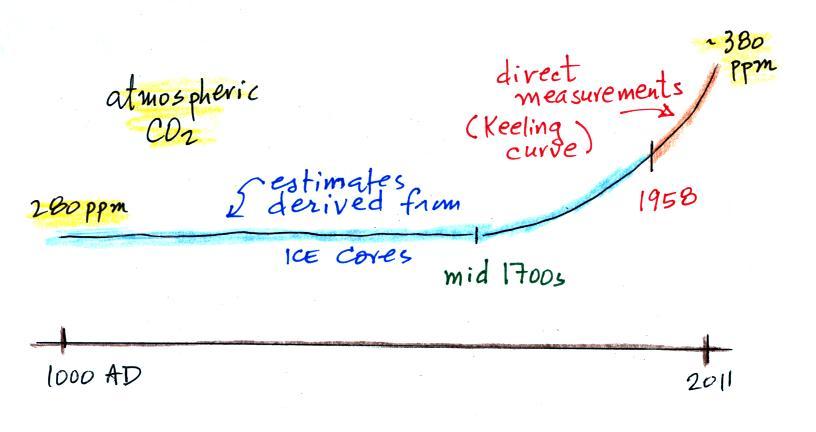 atmospheric
CO2
280 ppm
estimates
derived from
ICE Cores
mid 1700s
direct
measurements
(Keeling
curve)
1958
~380
ppm
1000 AD
2011